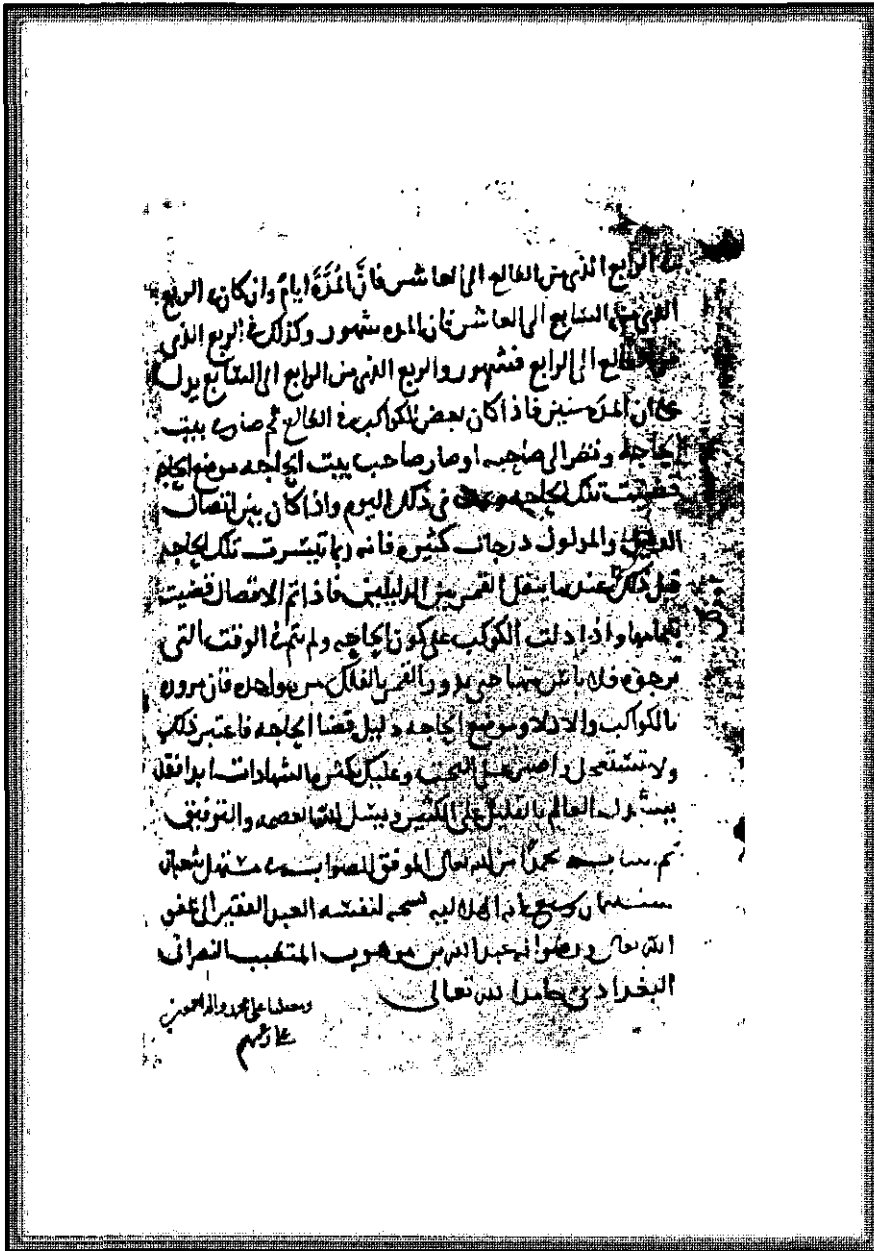 الربع الذي من الطالع الى العاشر فانَّ المُدَّةَ ايامٌ وان كان في الربع
الذي من السابع الى العاشر فان المده شهور وكذلك في الربع الذي
من الطالع الى الرابع فشهور والربع الذي من الرابع الى السابع يدل
على ان المده سنين فاذا كان بعض الكواكب في الطالع ثم صار في بيت
الحاجة ونظر الى صاحبه او صار صاحب بيت الحاجه موضع الحاجه
حصلت تلك الحاجه في ذلك اليوم واذا كان بين اتصال
الدليل والمدلول درجات كثيره فانه ربما تيسرت تلك الحاجه
قبل ذلك عند ما ينقل القمر بين الدليلين فاذا تم الاتصال قضيت
بتمامها واذا دلت الكوكب على كون الحاجه ولم يتم في الوقت التي
ترجوه فلا يأس منها حتى يدور القمر بالفلك مره واحده فان مروره
بالكواكب والادلا وموضع الحاجه دليل قضا الحاجه فاعتبر ذلك
ولا تستعجل واصبر على التعب وعليك بكثره الشهادات ابدا فقد
يستدل العالم بالقليل على الكثير ونسل الله العصمه والتوفيق
تم بحمد الله تعالى الموفق للصواب في مستهل شعبان
سنه الهلاليه نسخه لنفسه العبد الفقير الى عفو
الله تعالى ورضوانه عبد الله بن موهوب المتطبب النصراني
البغدادي حامدا لله تعالى